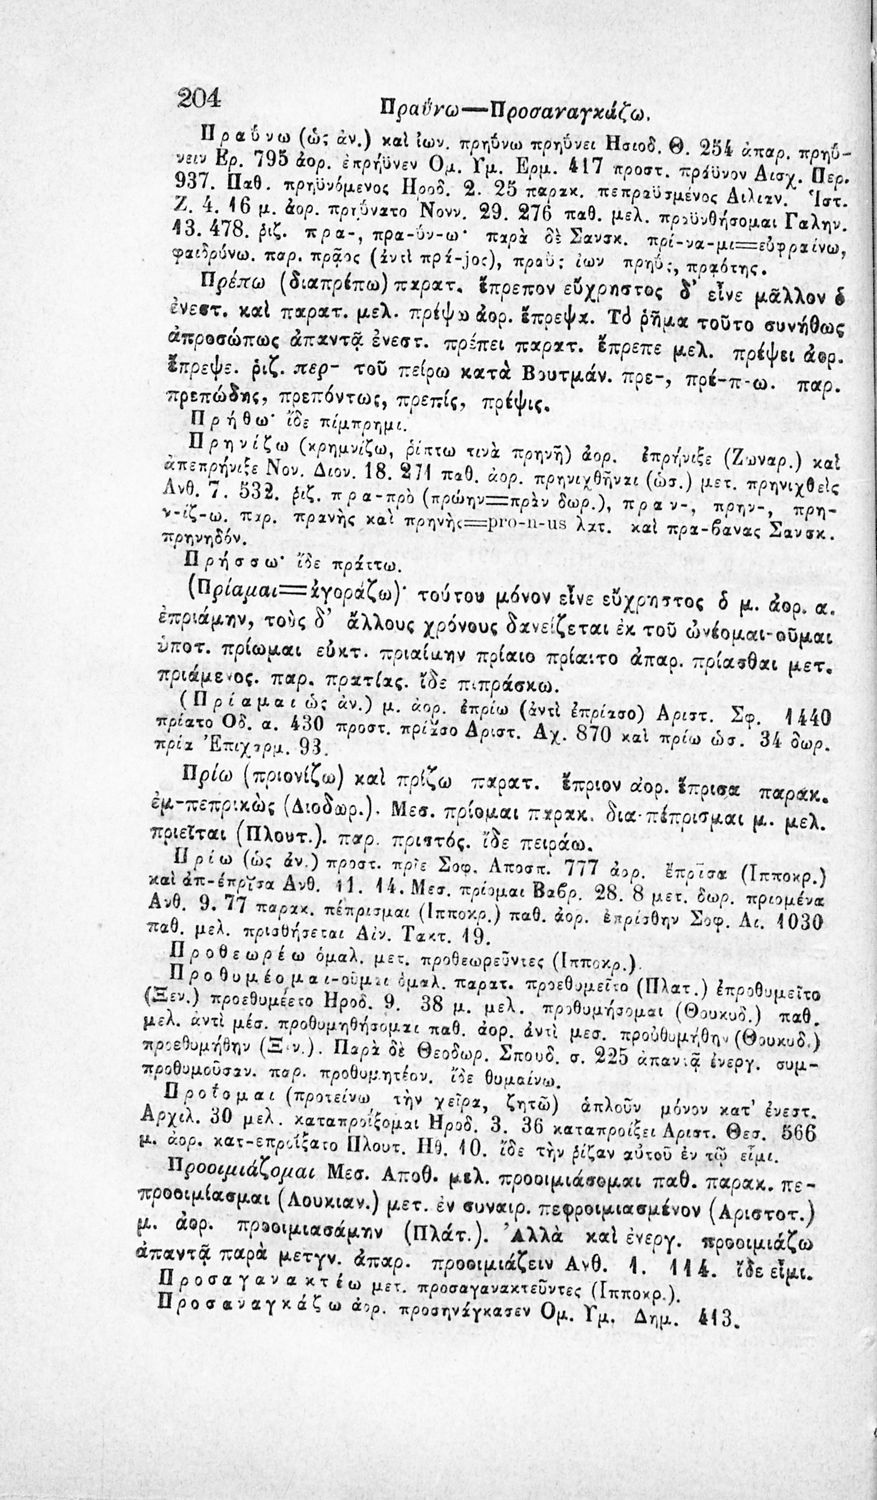 204
Πραΰνω—Προσαναγκάζω.
Πραΰνω (ὡς ἀν.) καὶ ἰων. πρηΰνω πρηΰνει Ησιοδ. Θ. 254 ἀπαρ. πρηΰ-
νειν Ερ. 795 ἀορ. ἐπρήϋνεν Ομ. Υμ. Ερμ. 417 προστ. πράϋνον Αισχ. Περ.
937. Παθ. πρηϋνόμενος Ηροδ. 2. 25 παρακ. πεπραϋσμένος Αιλιαν. Ἱστ.
Ζ. 4. 16 μ. ἀορ. πρηΰνατο Νονν. 29. 276 παθ. μελ. πραϋνθήσομαι Γαλην.
13. 478. ῥιζ. πρα-, πρα-ΰν-ω· παρὰ δὲ Σανσκ. πρί-να-μι=εὐφραίνω,
φαιδρύνω. παρ. πρᾷος (ἀντὶ πρά-jος), πραΰς ἰων πρηΰς, πραότης.
Πρέπω (διαπρέπω) παρατ. ἔπρεπον εὔχρηστος δ' εἶνε μᾶλλον ὁ
ἐνεστ. καὶ παρατ. μελ. πρέψω ἀορ. ἔπρεψα. Τὸ ῥῆμα τοῦτο συνήθως
ἀπροσώπως ἀπαντᾷ ἐνεστ. πρέπει παρατ. ἔπρεπε μελ. πρέψει ἀορ.
ἔπρεψε. ῥιζ. περ- τοῦ πείρω κατὰ Βουτμάν. πρε-, πρέ-π-ω. παρ.
πρεπώδης, πρεπόντως, πρεπίς, πρέψις.
Πρήθω· ἴδε πίμπρημι.
Πρηνίζω (κρημνίζω, ῥίπτω τινὰ πρηνῆ) ἀορ. ἐπρήνιξε (Ζωναρ.) καὶ
ἀπεπρήνιξε Νον. Διον. 18. 271 παθ. ἀορ. πρηνιχθῆναι (ὡσ.) μετ. πρηνιχθεὶς
Ανθ. 7. 532. ῥιζ. πρα-πρὸ (πρώην=πρὰν δωρ.), πραν-, πρην-, πρη-
ν-ίζ-ω. παρ. πρανὴς καὶ πρηνὴς=pro-n-us λατ. καὶ πρα-βανας Σανσκ.
πρηνηδόν.
Πρήσσω· ἴδε πράττω.
(Πρίαμαι=ἀγοράζω)· τούτου μόνον εἶνε εὔχρηστος ὁ μ. ἀορ. α.
ἐπριάμην, τοὺς δ' ἄλλους χρόνους δανείζεται ἐκ τοῦ ὠνέομαι-οῦμαι
ὑποτ. πρίωμαι εὐκτ. πριαίμην πρίαιο πρίαιτο ἀπαρ. πρίασθαι μετ.
πριάμενος. παρ. πρατίας. ἴδε πιπράσκω.
(Πρίαμαι ὡς ἀν.) μ. ἀορ. ἐπρίω (ἀντὶ ἐπρίασο) Αριστ. Σφ. 1440
πρίατο Οδ. α. 430 προστ. πρίασο Αριστ. Αχ. 870 καὶ πρίω ὡσ. 34 δωρ.
πρία Ἐπιχαρμ. 93.
Πρίω (πριονίζω) καὶ πρίζω παρατ. ἔπριον ἀορ. ἔπρισα παρακ.
ἐμ-πεπρικὼς (Διοδωρ.). Μεσ. πρίομαι παρακ. δια-πέπρισμαι μ. μελ.
πριεῖται (Πλουτ.). παρ. πριστός. ἴδε πειράω.
Πρίω (ὡς ἀν.) προστ. πρῖε Σοφ. Αποσπ. 777 ἀορ. ἔπρῖσα (Ιπποκρ.)
καὶ ἀπ-έπρῖσα Ανθ. 11. 14. Μεσ. πρίομαι Βαβρ. 28. 8 μετ. δωρ. πριομένα
Ανθ. 9. 77 παρακ. πέπρισμαι (Ιπποκρ.) παθ. ἀορ. ἐπρίσθην Σοφ. Αι. 1030
παθ. μελ. πρισθήσεται Αἰν. Τακτ. 19.
Προθεωρέω ὁμαλ. μετ. προθεωρεῦντες (Ιπποκρ.).
Προθυμέομαι-οῦμαι ὁμαλ. παρατ. προεθυμεῖτο (Πλατ.) ἐπροθυμεῖτο
(Ξεν.) προεθυμέετο Ηροδ. 9. 38 μ. μελ. προθυμήσομαι (Θουκυδ.) παθ.
μελ. ἀντὶ μέσ. προθυμηθήσομαι παθ. ἀορ. ἀντὶ μεσ. προὐθυμήθην (Θουκυδ.)
προεθυμήθην (Ξεν.). Παρὰ δὲ Θεοδωρ. Σπουδ. σ. 225 ἀπαντᾷ ἐνεργ. συμ-
προθυμοῦσαν. παρ. προθυμητέον. ἴδε θυμαίνω.
Προΐομαι (προτείνω τὴν χεῖρα, ζητῶ) ἁπλοῦν μόνον κατ' ἐνεστ.
Αρχιλ. 30 μελ. καταπροΐξομαι Ηροδ. 3. 36 καταπροίξει Αριστ. Θεσ. 566
μ. ἀορ. κατ-επροίξατο Πλουτ. Ηθ. 10. ἴδε τὴν ῥίζαν αὐτοῦ ἐν τῷ εἰμι.
Προοιμιάζομαι Μεσ. Αποθ. μελ. προοιμιάσομαι παθ. παρακ. πε-
προοιμίασμαι (Λουκιαν.) μετ. ἐν συναιρ. πεφροιμιασμένον (Αριστοτ.)
μ. ἀορ. προοιμιασάμην (Πλάτ.). Ἀλλὰ καὶ ἐνεργ. προοιμιάζω
ἀπαντᾷ παρὰ μετγν. ἀπαρ. προοιμιάζειν Ανθ. 1. 114. ἴδε εἶμι.
Προσαγανακτέω μετ. προσαγανακτεῦντες (Ιπποκρ.).
Προσαναγκάζω ἀορ. προσηνάγκασεν Ομ. Υμ. Δημ. 413.